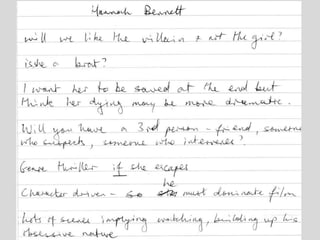 Hannah Bennett
will we like the villain + not the girl?
is she a brat?
I want her to be saved at the end but
think her dying may be more dramatic.
Will you have a 3rd person - friend, someone
who suspects, someone who intervenes?
Genre thriller if she escapes
he
Character driven - so must dominate film
Lots of scenes implying watching, building up his
obsessive nature